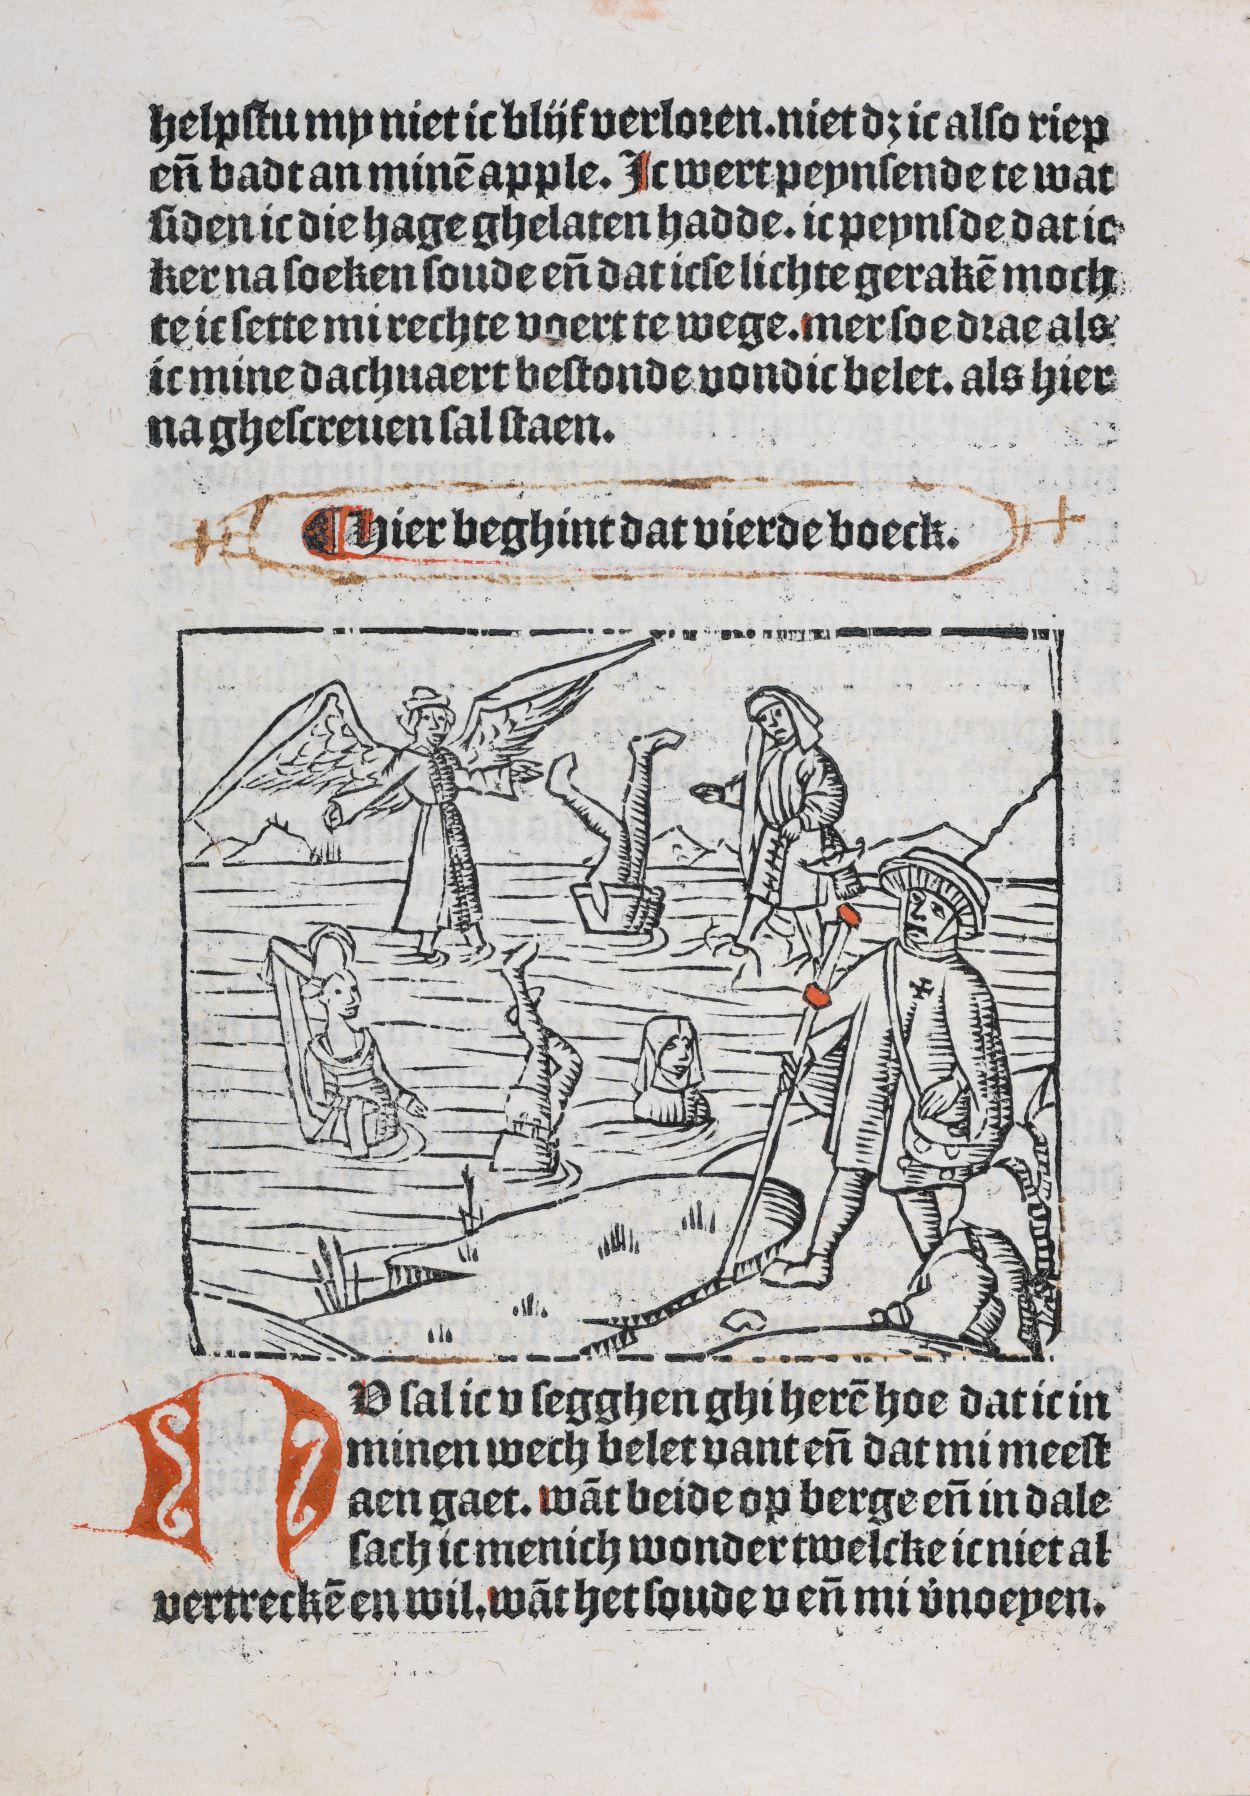 helpstu my niet ic blijf verloren. niet dꝫ ic also riep
en̄ badt an minē apple. Ic wert peynsende te wat
siden ic die hage ghelaten hadde. ic peynsde dat ic
ker na soeken soude en̄ dat icse lichte gerakē moch
te ic sette mi rechte voert te wege. mer soe drae als
ic mine dachuaert bestonde vondic belet. als hier
na ghescreuen sal staen.
¶ Hier beghint dat vierde boeck.
NV sal ic v segghen ghi herē hoe dat ic in
minen wech belet vant en̄ dat mi meest
aen gaet. wāt beide op berge en̄ in dale
sach ic menich wonder twelcke ic niet al
vertreckē en wil. wāt het soude v en̄ mi v̓noeyen.